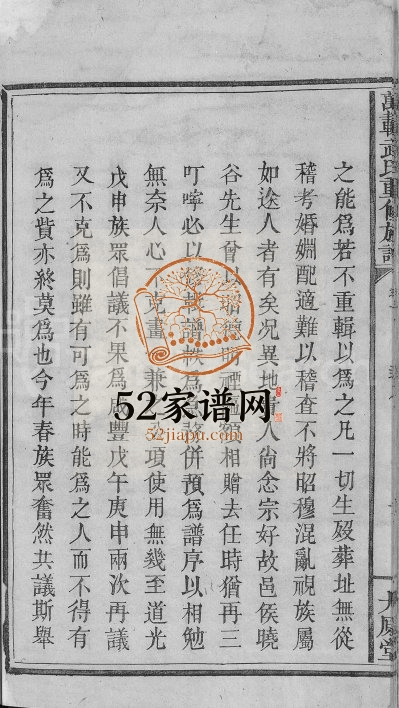 之能爲若不重輯以爲之凡一切生殁葬址無從
稽考婚姻配適難以稽查不將昭穆混亂視族屬
如途人者有矣况異地人尙念宗好故邑侯曉
谷先生曾以額相贈去任時猶再三
叮嚀必以修輯譜軼爲務併預爲譜序以相勉
無奈人心不克畫兼項使用無幾至道光
戊申族眾倡議不果爲咸豐戊午庚申兩次再議
又不克爲則雖有可爲之時能爲之人而不得有
爲之貲亦終莫爲也今年春族眾奮然共議斯舉
萬載 氏重修族譜
堂
52家谱网
52jiapu.com